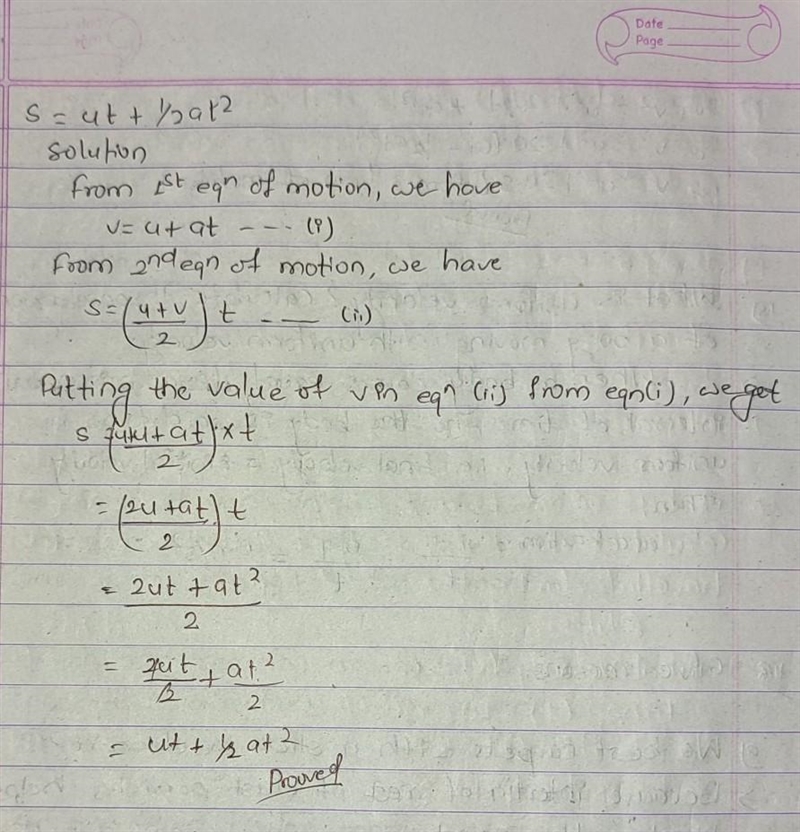 Date
Page
S = ut + 1/2 at²
Solution
from 1st eqn of motion, we have
v = u + at --- (i)
from 2nd eqn of motion, we have
S = (u+v/2) t --- (ii)
Putting the value of v in eqn (ii) from eqn(i), we get
S = (u+u+at/2) × t
= (2u+at/2) t
= 2ut + at²/2
= 2ut/2 + at²/2
= ut + 1/2 at²
Proved